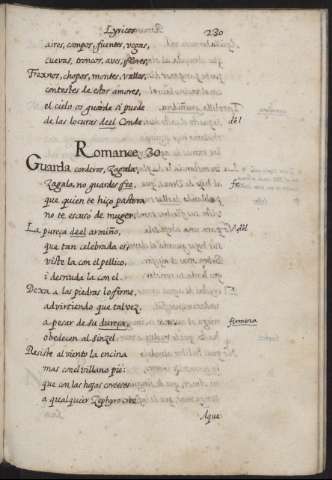 Lyricos 230
aires, campos, fuentes, vegas,
cuevas, troncos, aves, flores,
Fresnos, chopos, montes, valles,
contestes de estos amores,
el cielo os guarde si puede
de las locuras deel Conde. del
Romance 30
Guarda corderos, Zagala,
Zagala, no guardes fee, fe
que quien te hizo pastora
no te escusó de muger.
La pureça deel armiño, del
que tan celebrada es,
viste la con el pellico,
i desnuda la con el.
Dexa a las piedras lo firme,
advirtiendo que tal vez,
a pesar de su dureça, firmeza
obedecen al sinzel.
Resiste al viento la encina
mas con el villano pie:
que con las hojas corteses
a qualquier Zephyro cree.
Aque